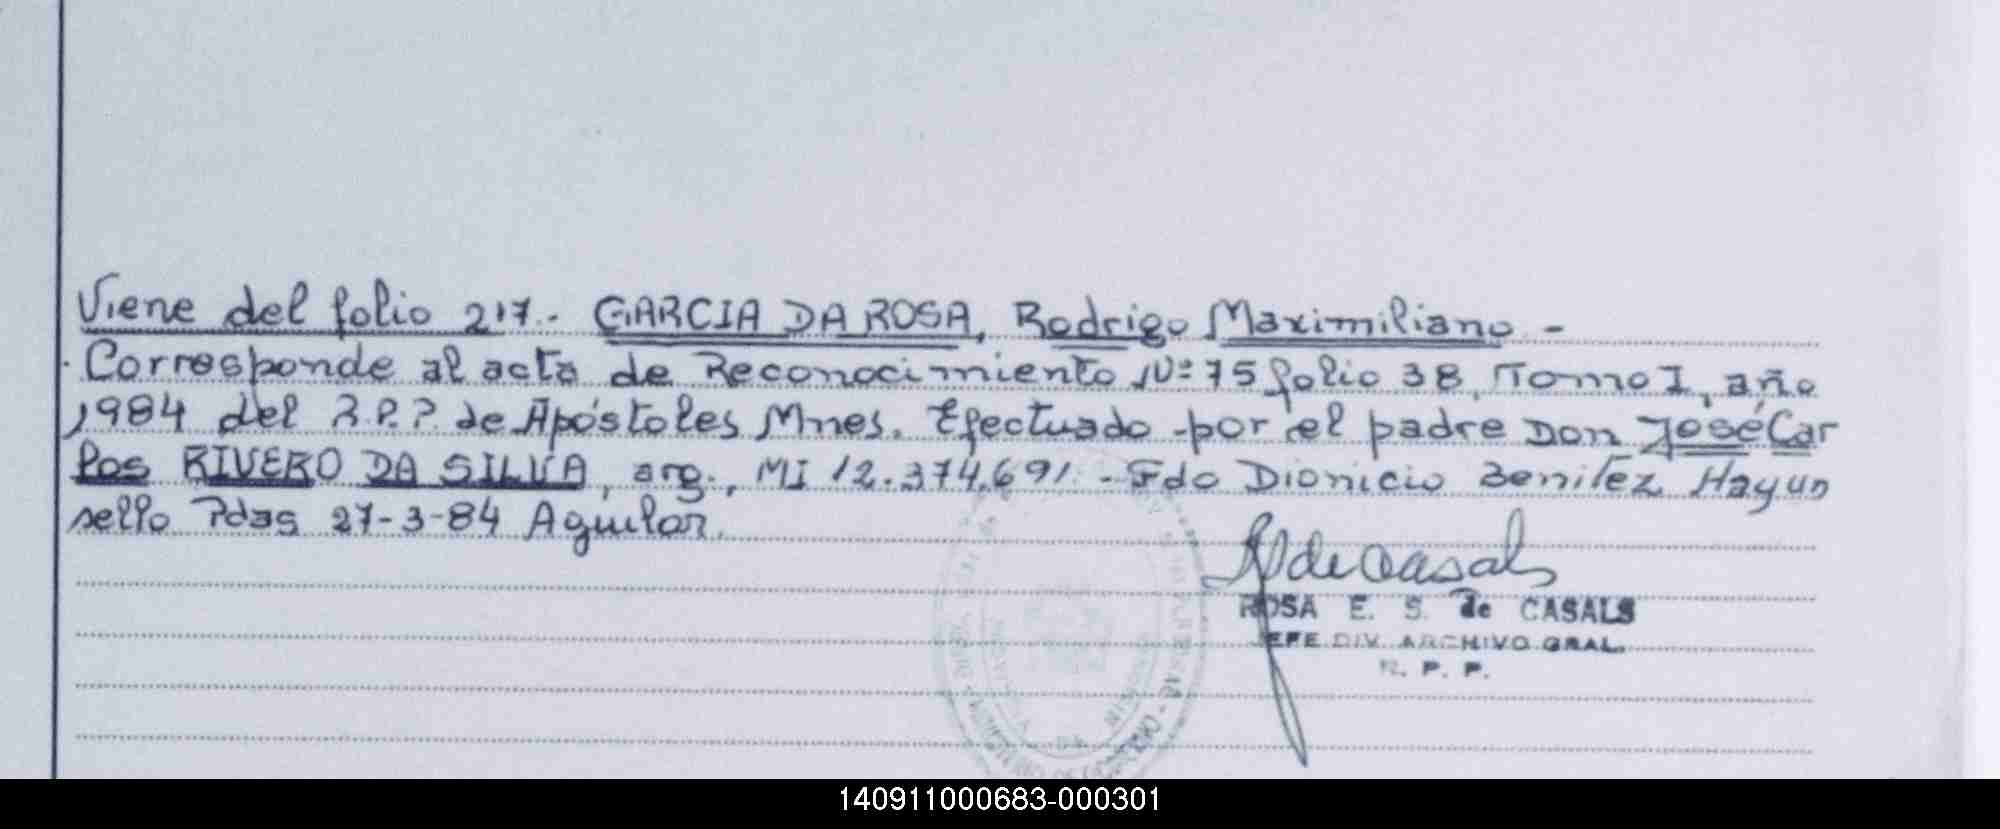 Viene del folio 217.- GARCIA DA ROSA, Rodrigo Maximiliano -
Corresponde al acta de Reconocimiento Nº 75 folio 38, Tomo I, año
1984 del R.P.P. de Apóstoles Mnes. Efectuado por el padre Don José Car
los RIVERO DA SILVA, arg., MI 12.374.691.- Fdo Dionicio Benitez Hay un
sello Pdas 27-3-84 Aguilar.
de Casals
ROSA E. S. de CASALS
JEFE DIV. ARCHIVO GRAL.
R. P. P.
140911000683-000301